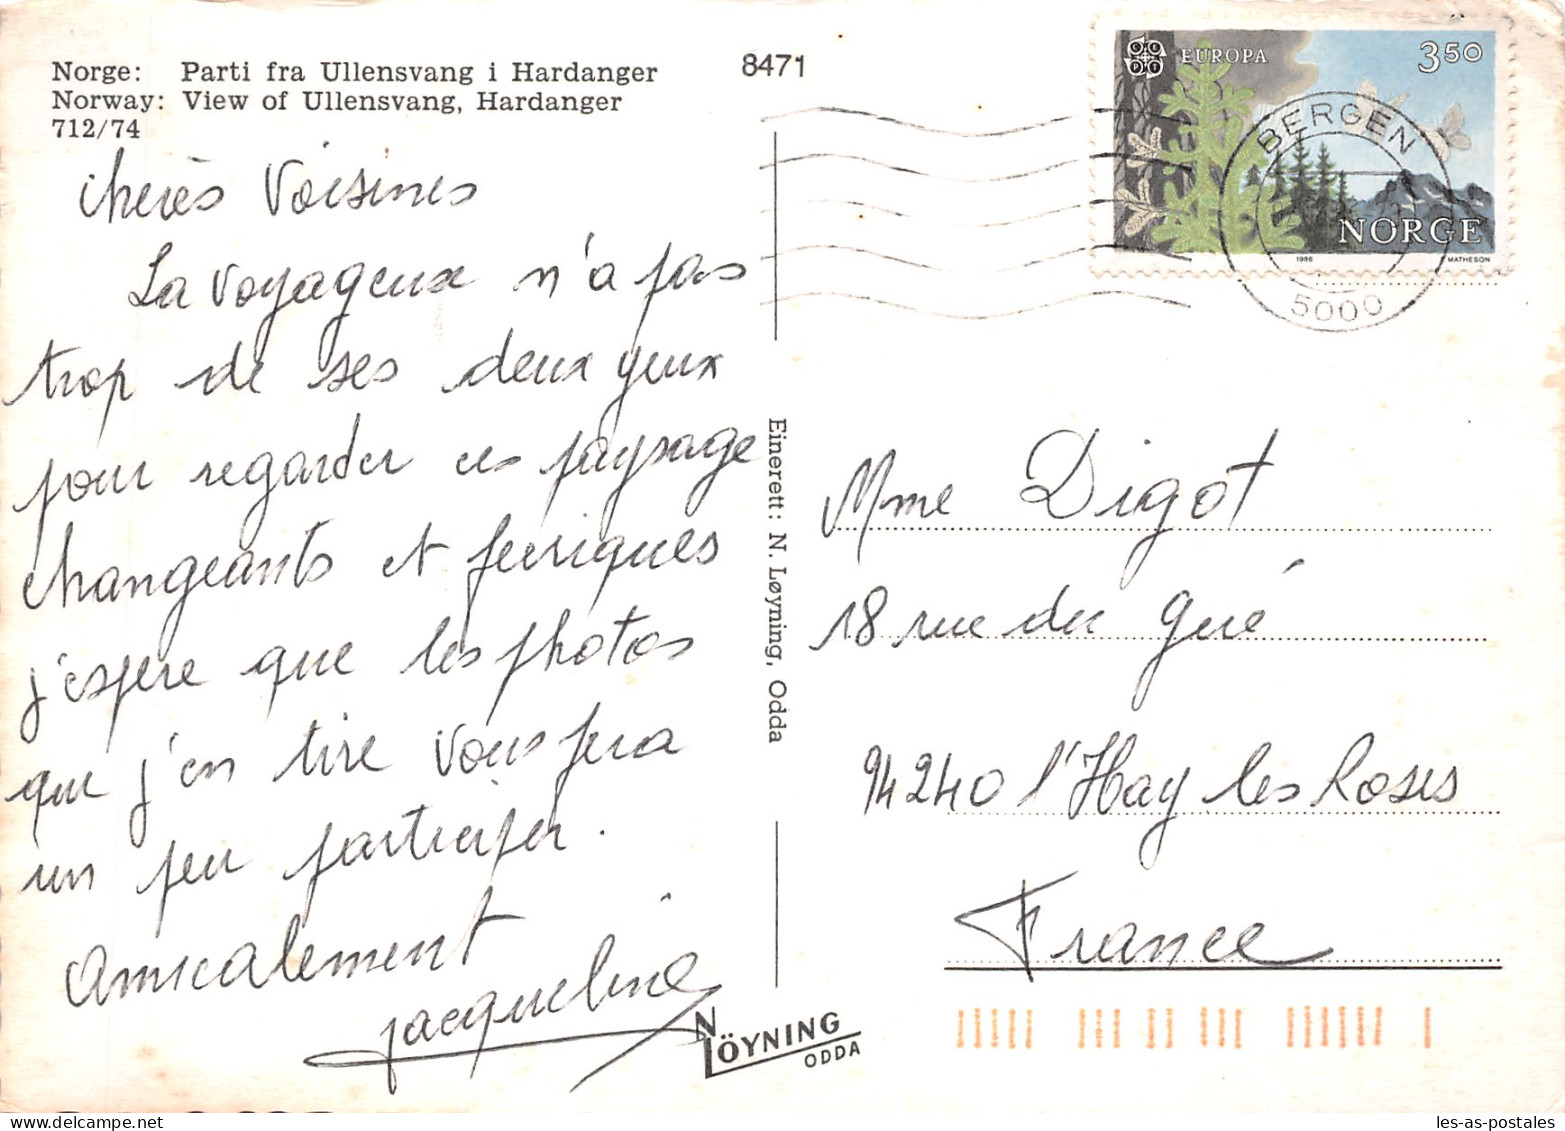 Norge: Parti fra Ullensvang i Hardanger
Norway: View of Ullensvang, Hardanger
712/74
8471
chères Voisines
La voyageuse n'a pas
trop de ses deux yeux
pour regarder ces paysage
changeants et feeriques
j'espère que les photos
que j'en tire vous fera
un peu participer.
Amicalement
Jacqueline
Einerett: N. Løyning, Odda
NLÖYNING
ODDA
EUROPA
350
NORGE
1986
MATHESON
BERGEN
5000
Mme Digot
18 rue du Gué
94240 l'Hay les Roses
France
les-as-postales